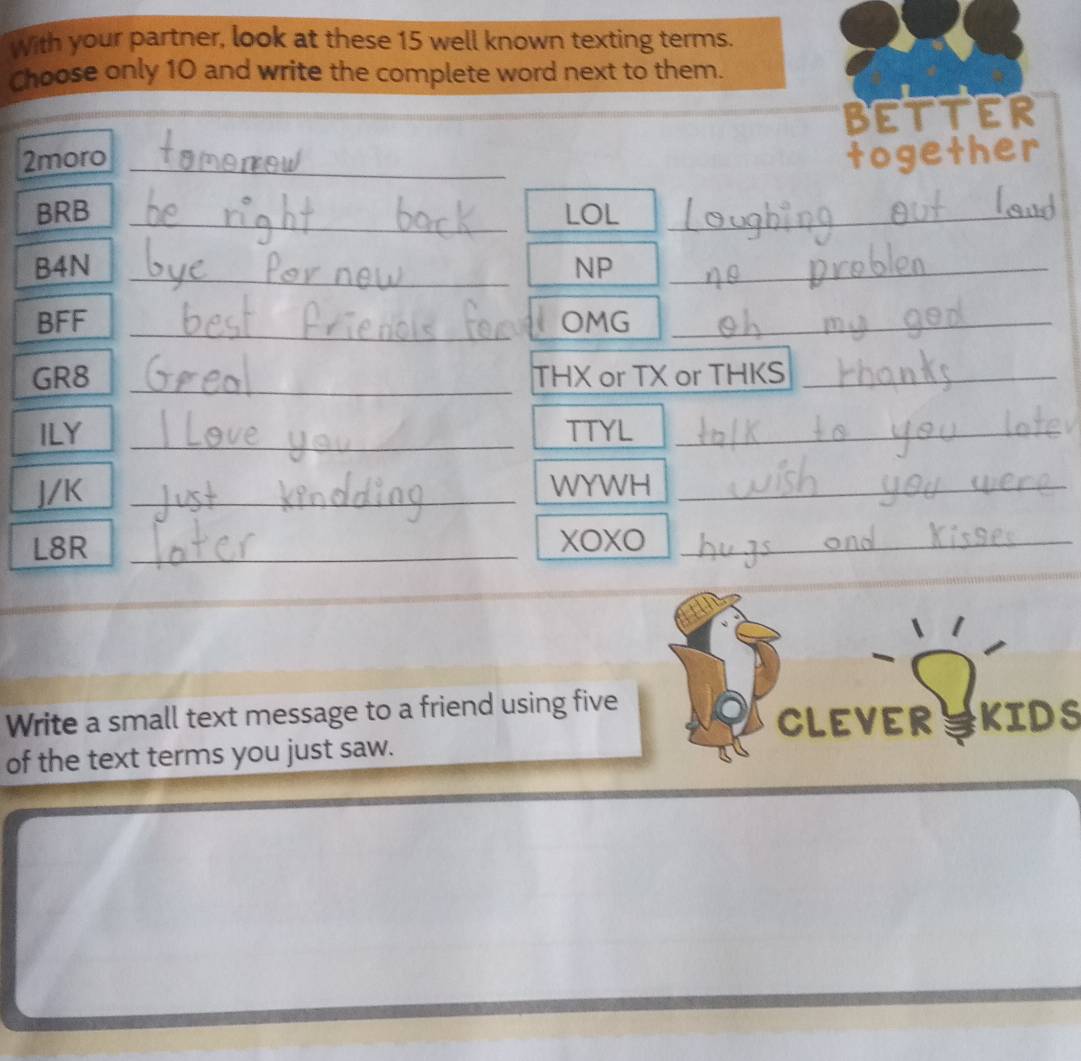 With your partner, look at these 15 well known texting terms.
Choose only 10 and write the complete word next to them.
BETTER
together
2moro tomorrow
BRB be right back
LOL Loughing out loud
B4N bye For now
NP no problen
BFF best friends
OMG oh my god
GR8 Great
THX or TX or THKS thanks
ILY I Love you
TTYL talk to you later
J/K Just kindding
WYWH wish you were
L8R later
XOXO hugs and kisses
Write a small text message to a friend using five
of the text terms you just saw.
CLEVER KIDS